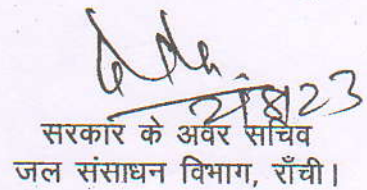 सरकार के अवर सचिव
जल संसाधन विभाग, राँची।